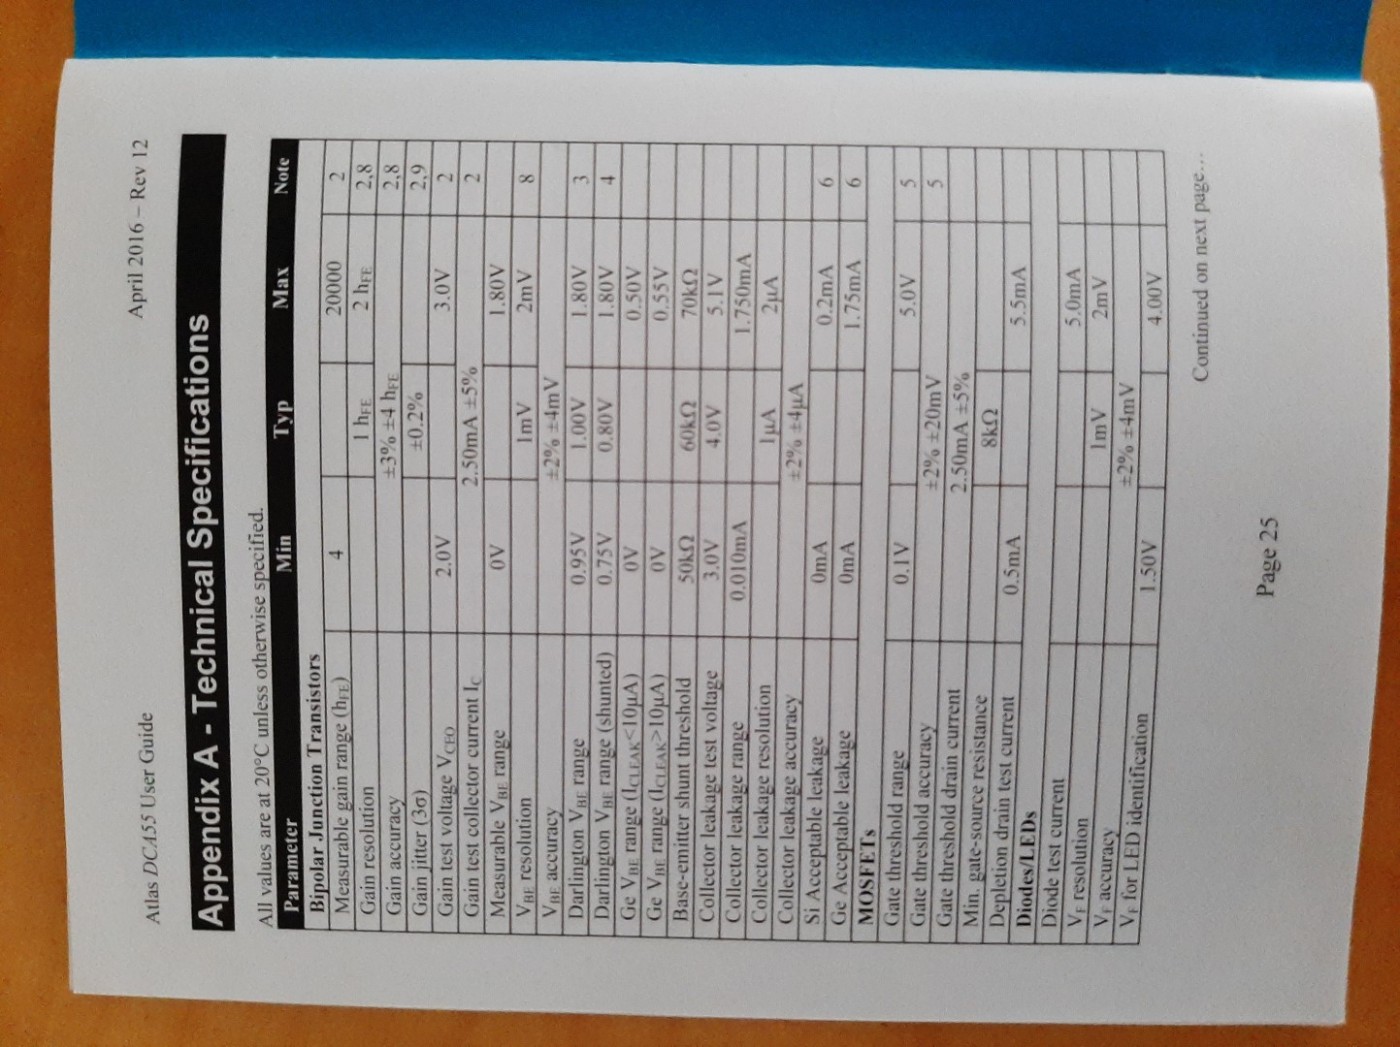 Atlas DCA55 User Guide April 2016 – Rev 12
Appendix A - Technical Specifications
All values are at 20°C unless otherwise specified.
Parameter Min Typ Max Note
Bipolar Junction Transistors
Measurable gain range (hFE) 4 20000 2
Gain resolution 1 hFE 2 hFE 2,8
Gain accuracy ±3% ±4 hFE 2,8
Gain jitter (3σ) ±0.2% 2,9
Gain test voltage VCEO 2.0V 3.0V 2
Gain test collector current IC 2.50mA ±5% 2
Measurable VBE range 0V 1.80V
VBE resolution 1mV 2mV 8
VBE accuracy ±2% ±4mV
Darlington VBE range 0.95V 1.00V 1.80V 3
Darlington VBE range (shunted) 0.75V 0.80V 1.80V 4
Ge VBE range (ICLEAK<10µA) 0V 0.50V
Ge VBE range (ICLEAK>10µA) 0V 0.55V
Base-emitter shunt threshold 50kΩ 60kΩ 70kΩ
Collector leakage test voltage 3.0V 4.0V 5.1V
Collector leakage range 0.010mA 1.750mA
Collector leakage resolution 1µA 2µA
Collector leakage accuracy ±2% ±4µA
Si Acceptable leakage 0mA 0.2mA 6
Ge Acceptable leakage 0mA 1.75mA 6
MOSFETs
Gate threshold range 0.1V 5.0V 5
Gate threshold accuracy ±2% ±20mV 5
Gate threshold drain current 2.50mA ±5%
Min. gate-source resistance 8kΩ
Depletion drain test current 0.5mA 5.5mA
Diodes/LEDs
Diode test current 5.0mA
VF resolution 1mV 2mV
VF accuracy ±2% ±4mV
VF for LED identification 1.50V 4.00V
Continued on next page…
Page 25